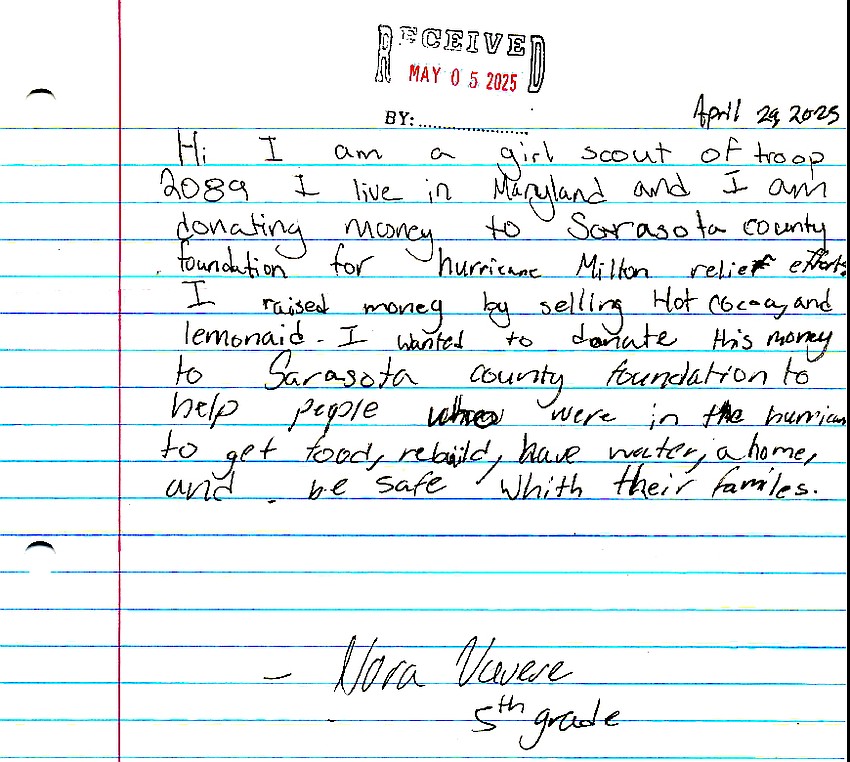 RECEIVED
MAY 05 2025
BY:
April 29, 2025
Hi I am a girl scout of troop
2089 I live in Maryland and I am
donating money to Sarasota county
foundation for hurricane Milton relief efforts.
I raised money by selling Hot cocoa, and
lemonaid. I wanted to donate this money
to Sarasota county foundation to
help people who were in the hurrican
to get food, rebuild, have water, a home,
and be safe whith their familes.
- Nora
5th grade